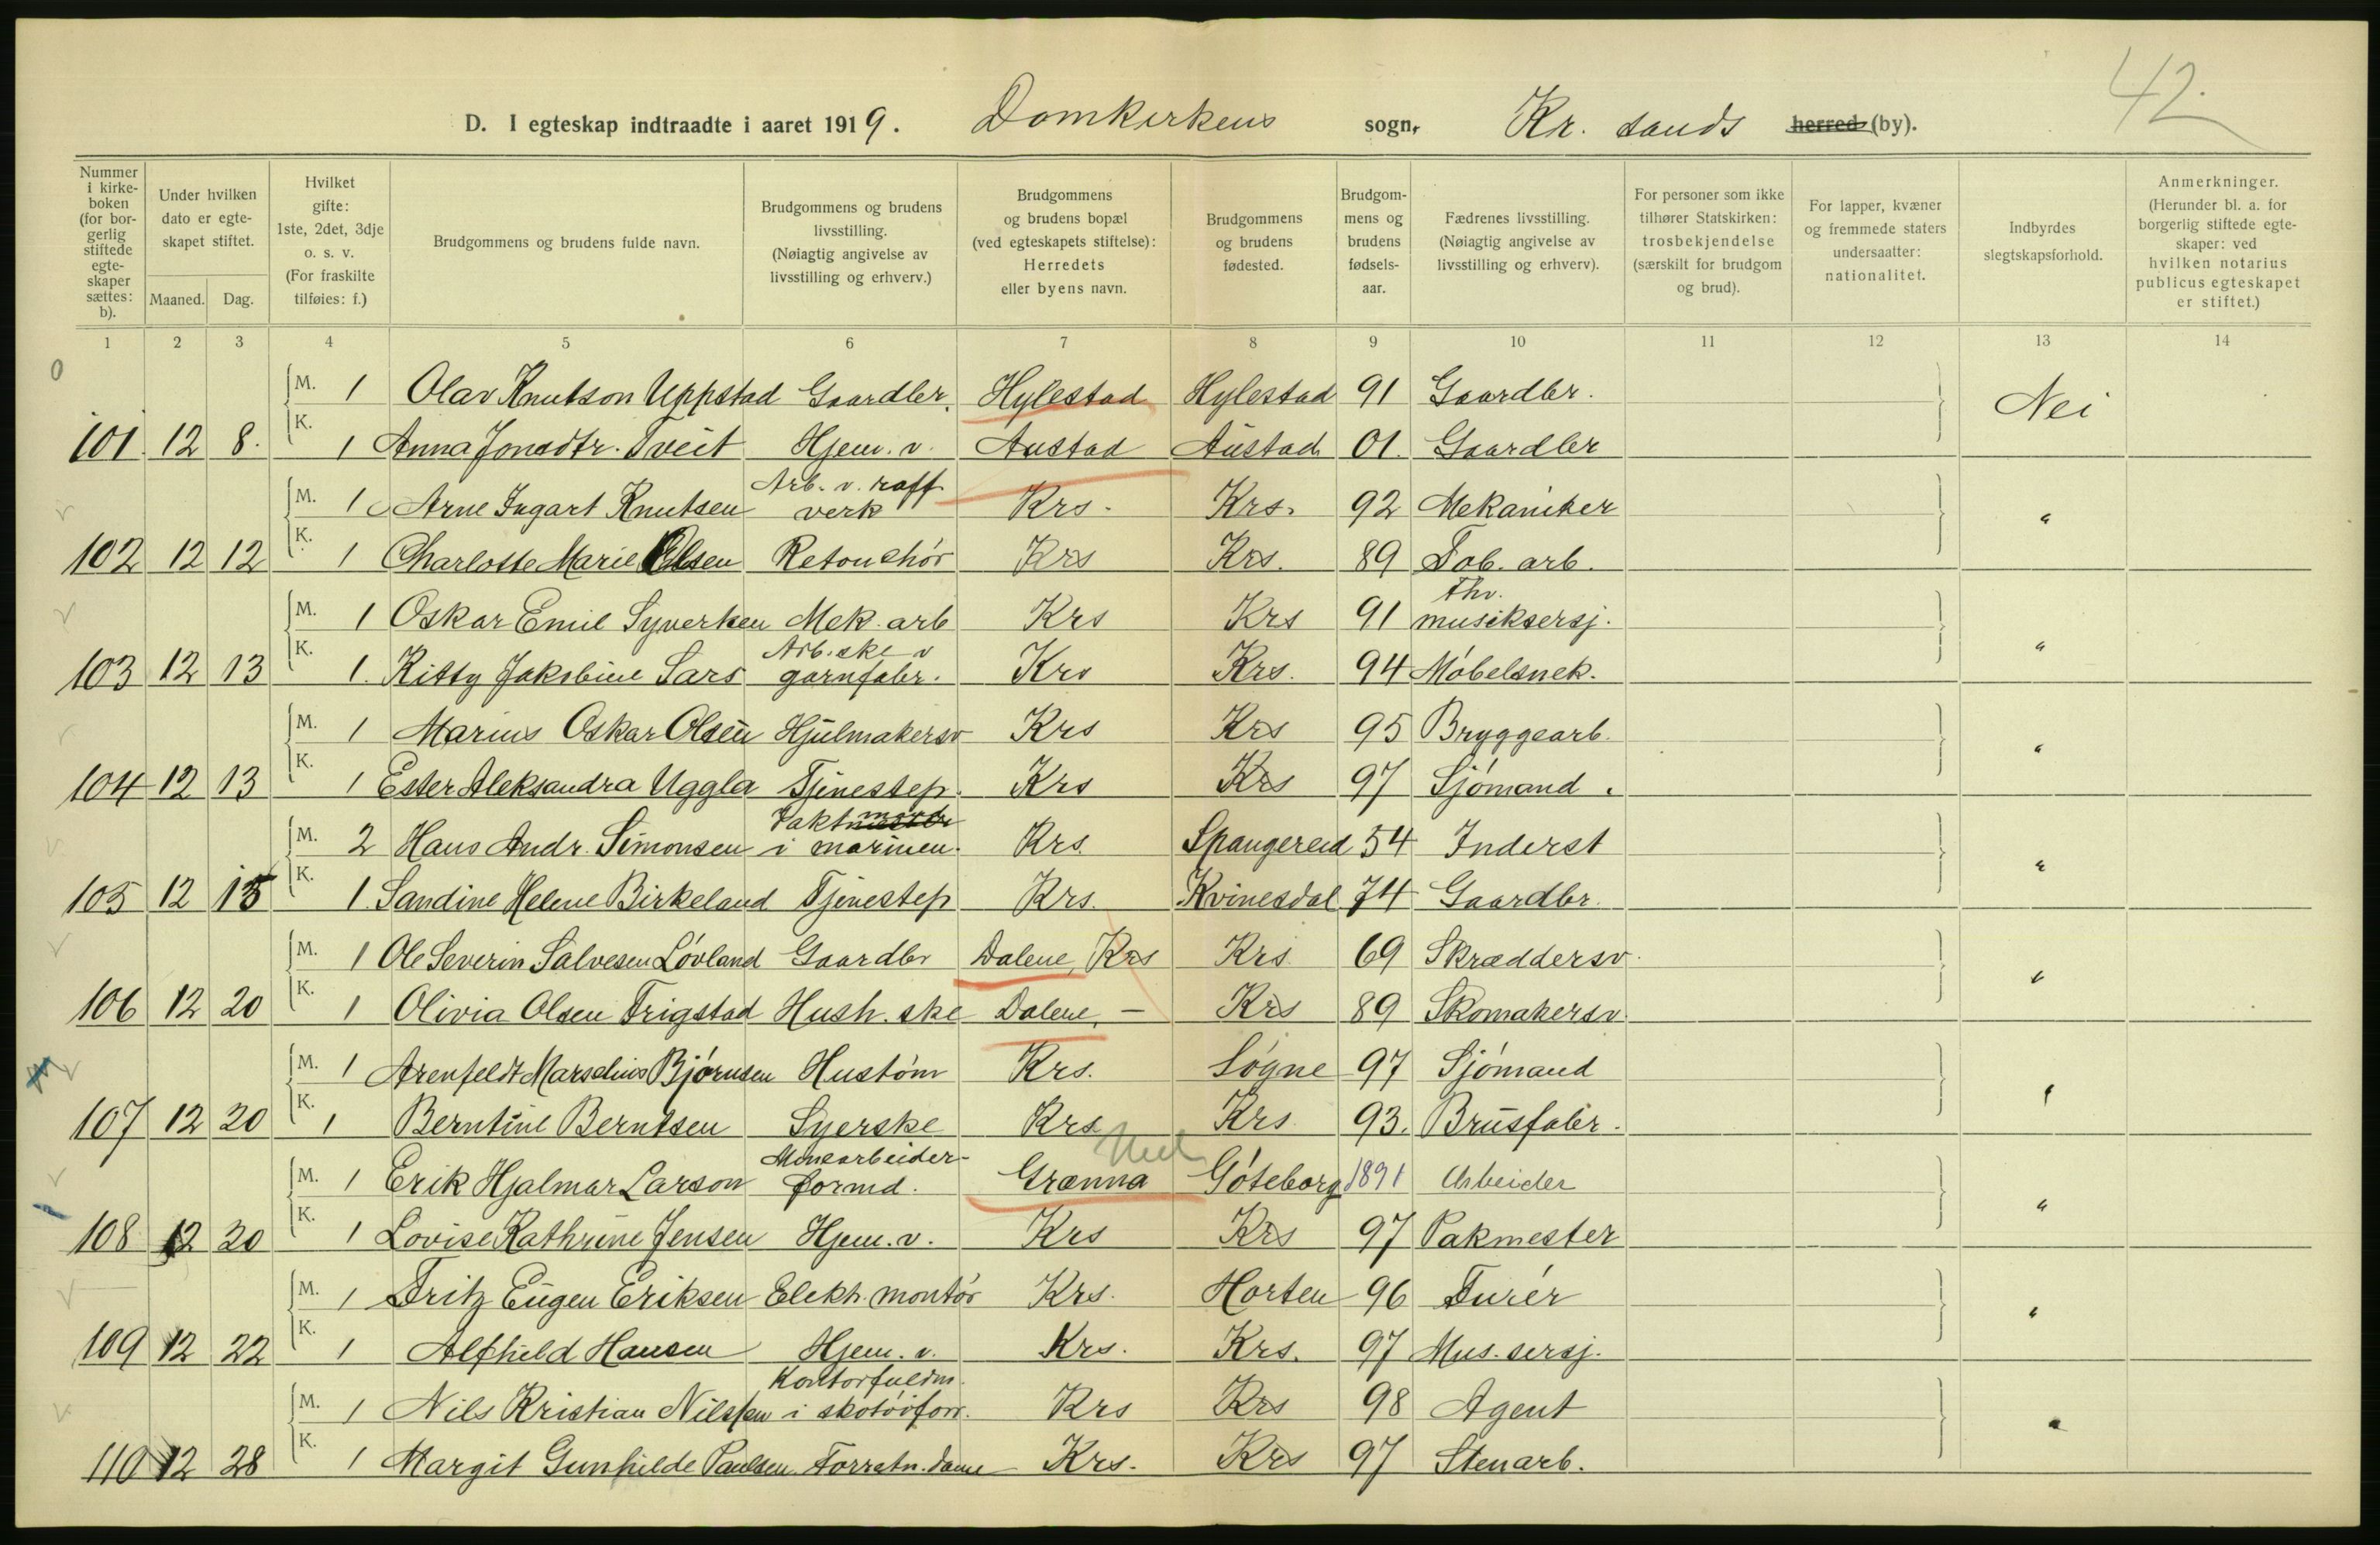 42.
D. I egteskap indtraadte i aaret 1919. Domkirkens sogn, Kr. sands herred (by).
Nummer i kirkeboken (for borgerlig stiftede egteskaper sættes: b).
Under hvilken dato er egteskapet stiftet.
Maaned. Dag.
Hvilket gifte: 1ste, 2det, 3dje o. s. v. (For fraskilte tilføies: f.)
Brudgommens og brudens fulde navn.
Brudgommens og brudens livsstilling. (Nøiagtig angivelse av livsstilling og erhverv.)
Brudgommens og brudens bopæl (ved egteskapets stiftelse): Herredets eller byens navn.
Brudgommens og brudens fødested.
Brudgommens og brudens fødselsaar.
Fædrenes livsstilling. (Nøiagtig angivelse av livsstilling og erhverv).
For personer som ikke tilhører Statskirken: trosbekjendelse (særskilt for brudgom og brud).
For lapper, kvæner og fremmede staters undersaatter: nationalitet.
Indbyrdes slegtskapsforhold.
Anmerkninger. (Herunder bl. a. for borgerlig stiftede egteskaper: ved hvilken notarius publicus egteskapet er stiftet.)
1 2 3 4 5 6 7 8 9 10 11 12 13 14
M. 1 Olav Knutson Uppstad Gaardbr. Hylestad Hylestad 91 Gaardbr. Nei
101. 12 8. K. 1 Anna Jonsdtr. Tveit Hjem. v. Austad Austad 01. Gaardbr
M. 1 Arne Ingart Knutsen Arb. v. raff. verk Krs. Krs. 92 Mekaniker "
102 12 12 K. 1 Charlotte Marie Olsen Retouchör Krs Krs. 89 Tob. arb.
M. 1 Oskar Emil Syvertsen Mek. arb Krs Krs 91 Fhv. musiksersj. "
103 12 13 K. 1. Kitty Jakobine Lars Arb.ske v garnfabr. Krs Krs. 94 Möbelsnek.
M. 1 Marius Oskar Olsen Hjulmakersv Krs Krs 95 Bryggearb. "
104 12 13 K. 1 Ester Aleksandra Uggla Tjenestep. Krs Krs 97 Sjömand.
M. 2 Hans Andr. Simonsen i marinen. Krs. Spangereid 54 Inderst "
105 12 15 K. 1. Sandine Helene Birkeland Tjenestep Krs. Kvinesdal 74 Gaardbr.
M. 1 Ole Severin Salvesen Lövland Gaardbr Dalene, Krs Krs. 69 Skræddersv. "
106 12 20 K. 1 Olivia Olsen Trigstad Hush.ske Dalene, — Krs 89 Skomakersv
M. 1 Arenfeldt Marselius Björnsen Hustöm Krs. Sögne 97 Sjömand "
107 12 20 K. 1 Berntine Berntsen Syerske Krs Krs 93. Brusfabr.
M. 1 Erik Hjalmar Larson Minearbeider-formd. Grænna Göteborg 1891 Arbeider "
108 12 20 K. 1 Lovise Kathrine Jensen Hjem. v. Krs Krs 97 Pakmester
M. 1 Fritz Eugen Eriksen Elektr. montör Krs. Horten 96 Furér "
109 12 22 K. 1 Alfhild Hansen Hjem. v. Krs. Krs. 97 Mus. sersj.
M. 1 Nils Kristian Nilssen Kontorfuldm. i skotöiforr. Krs Krs 98 Agent "
110 12 28 K. 1 Margit Gunhilde Paulsen Forretn. dame Krs. Krs 97 Stenarb.